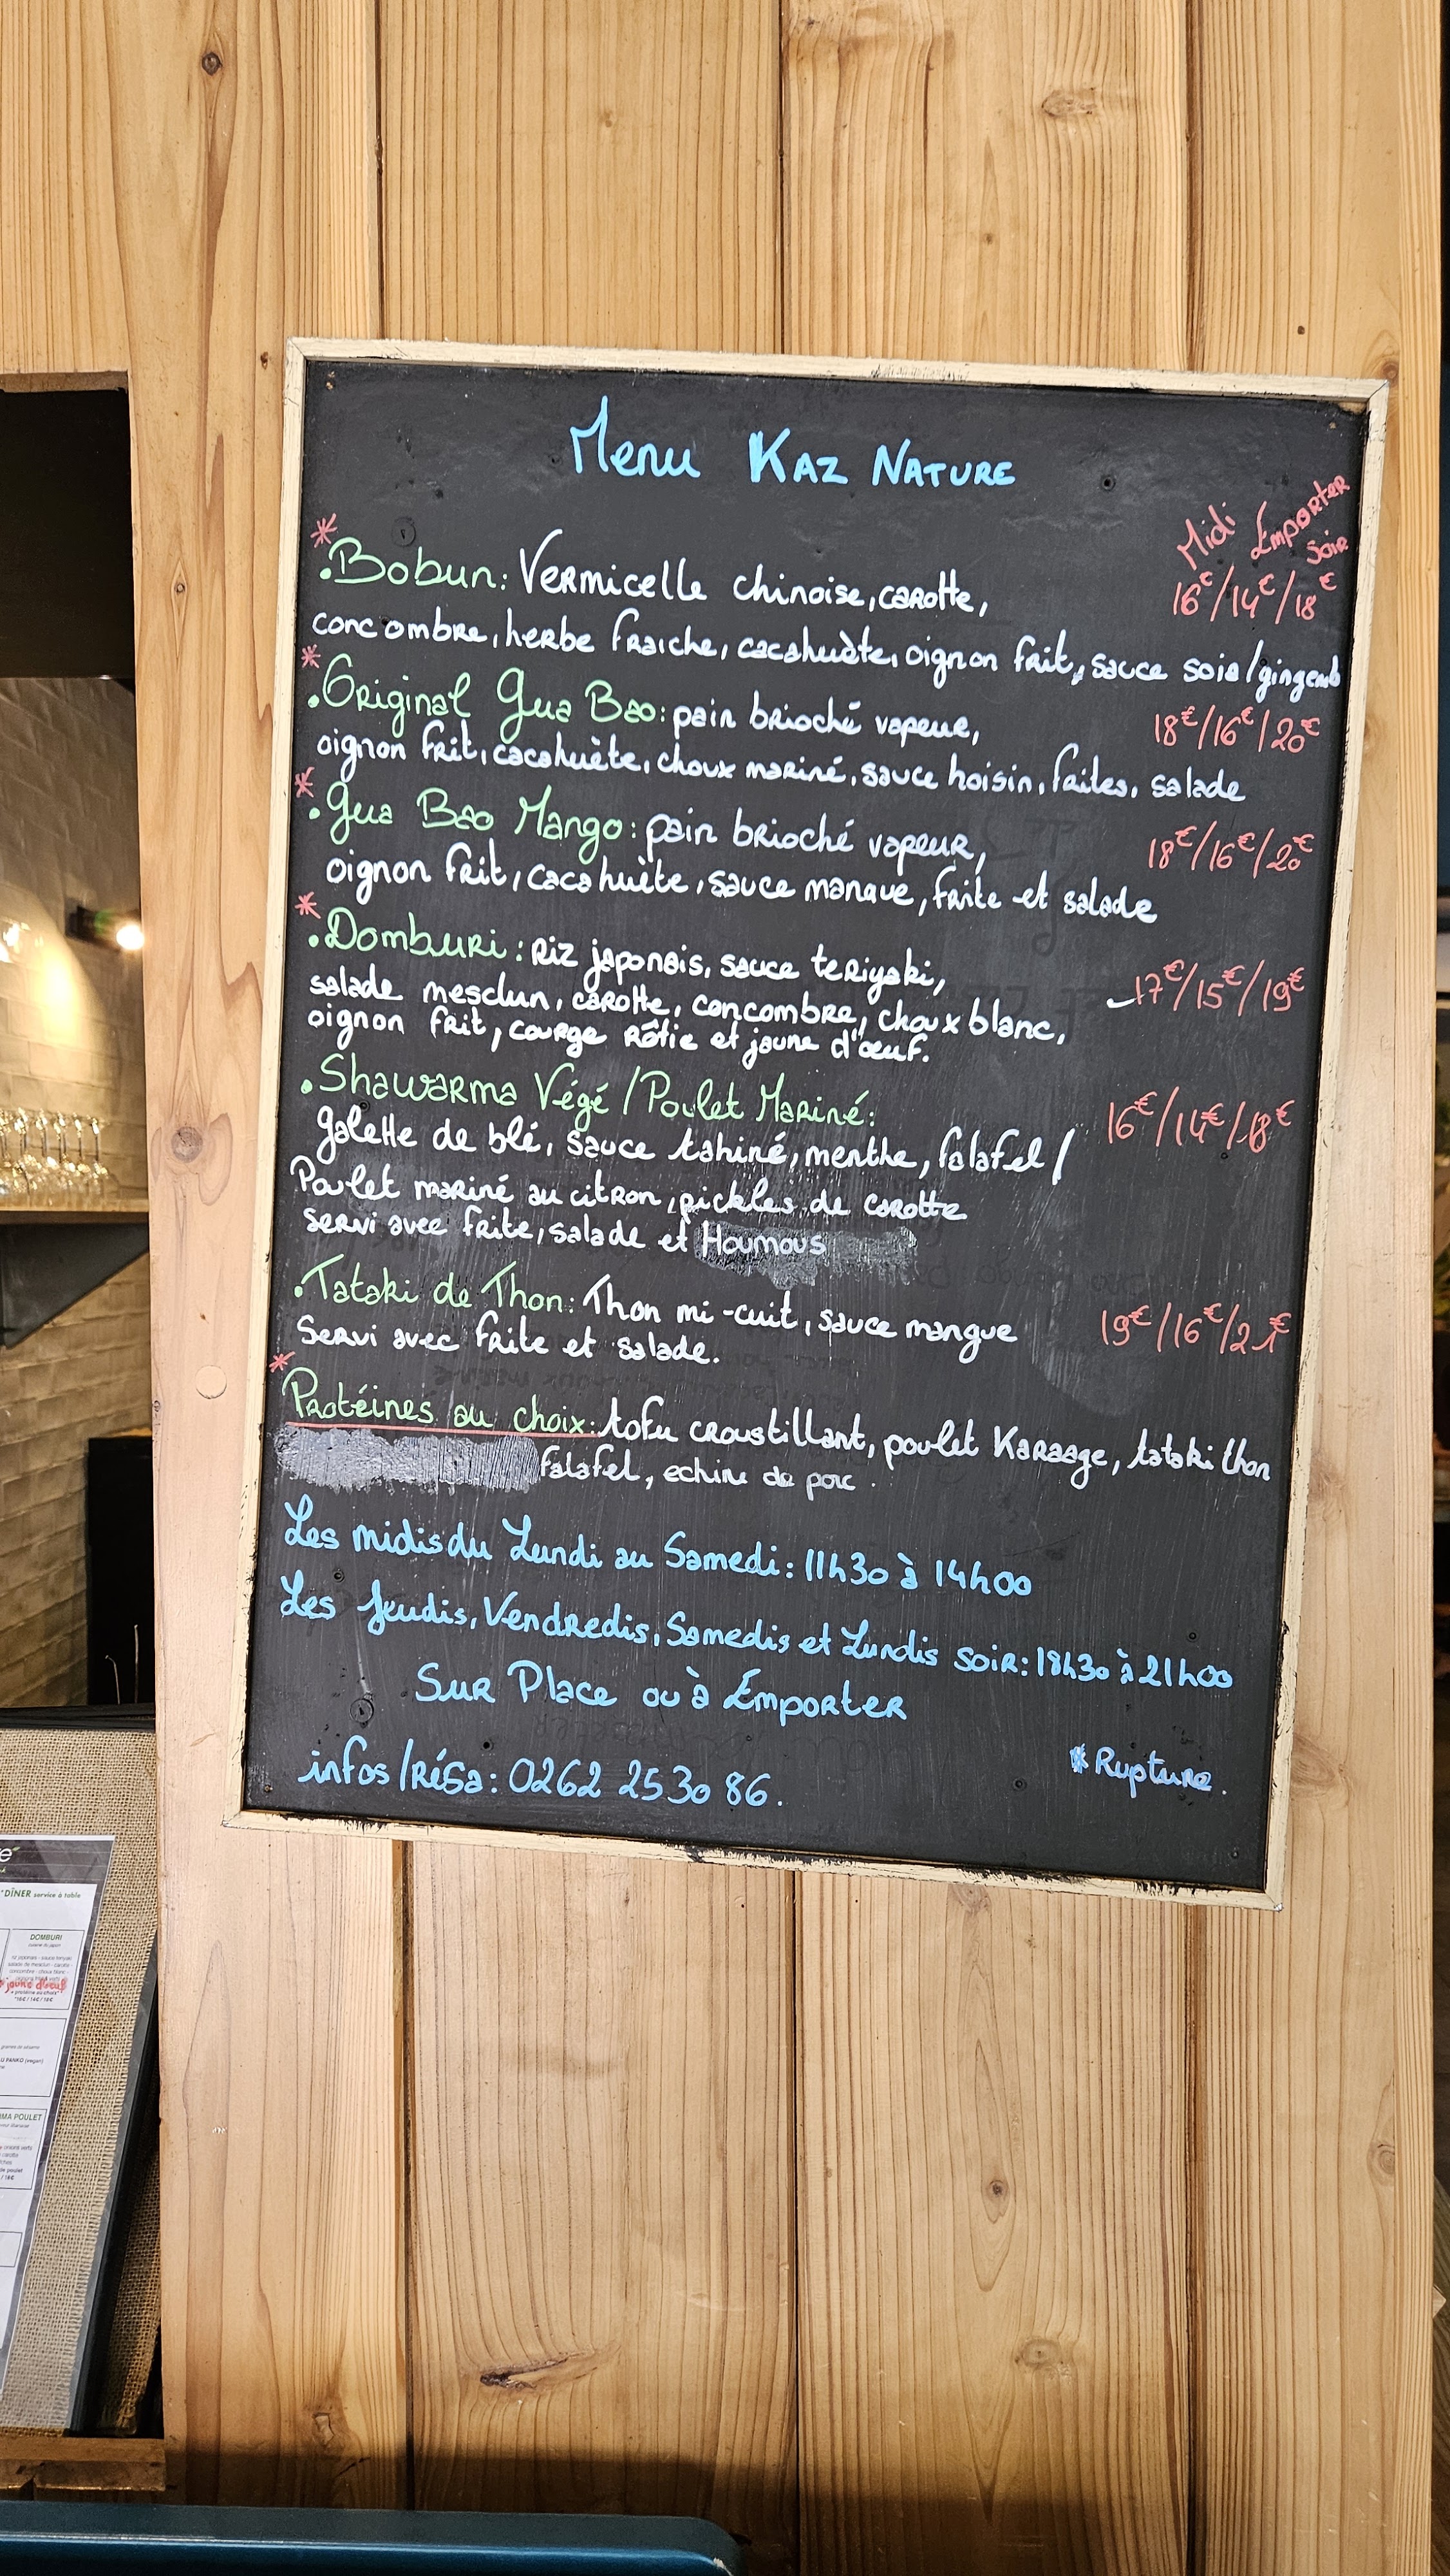 Menu KAZ NATURE
Midi Emporter Soir
* . Bobun: Vermicelle chinoise, carotte, 16€/14€/18€
concombre, herbe fraiche, cacahuète, oignon frit, sauce soia/gingemb
* . Original Gua Bao: pain brioché vapeur, 18€/16€/20€
oignon frit, cacahuète, choux mariné, sauce hoisin, frites, salade
* . Gua Bao Mango: pain brioché vapeur, 18€/16€/20€
oignon frit, cacahuète, sauce mangue, frite et salade
* . Domburi: riz japonais, sauce teriyaki, 17€/15€/19€
salade mesclun, carotte, concombre, choux blanc,
oignon frit, courge rôtie et jaune d'œuf.
. Shawarma Végé / Poulet Mariné: 16€/14€/18€
galette de blé, sauce tahiné, menthe, falafel /
Poulet mariné au citron, pickles de carotte
servi avec frite, salade et Houmous
. Tataki de Thon: Thon mi-cuit, sauce mangue 19€/16€/21€
Servi avec frite et salade.
* Protéines au choix: tofu croustillant, poulet Karaage, tataki thon
falafel, echine de porc.
Les midis du Lundi au Samedi: 11h30 à 14h00
Les Jeudis, Vendredis, Samedis et Lundis soir: 18h30 à 21h00
Sur Place ou à Emporter
infos/résa: 0262 25 30 86.
* Rupture.
DÎNER service à table
DOMBURI
jaune d'œuf
MA POULET